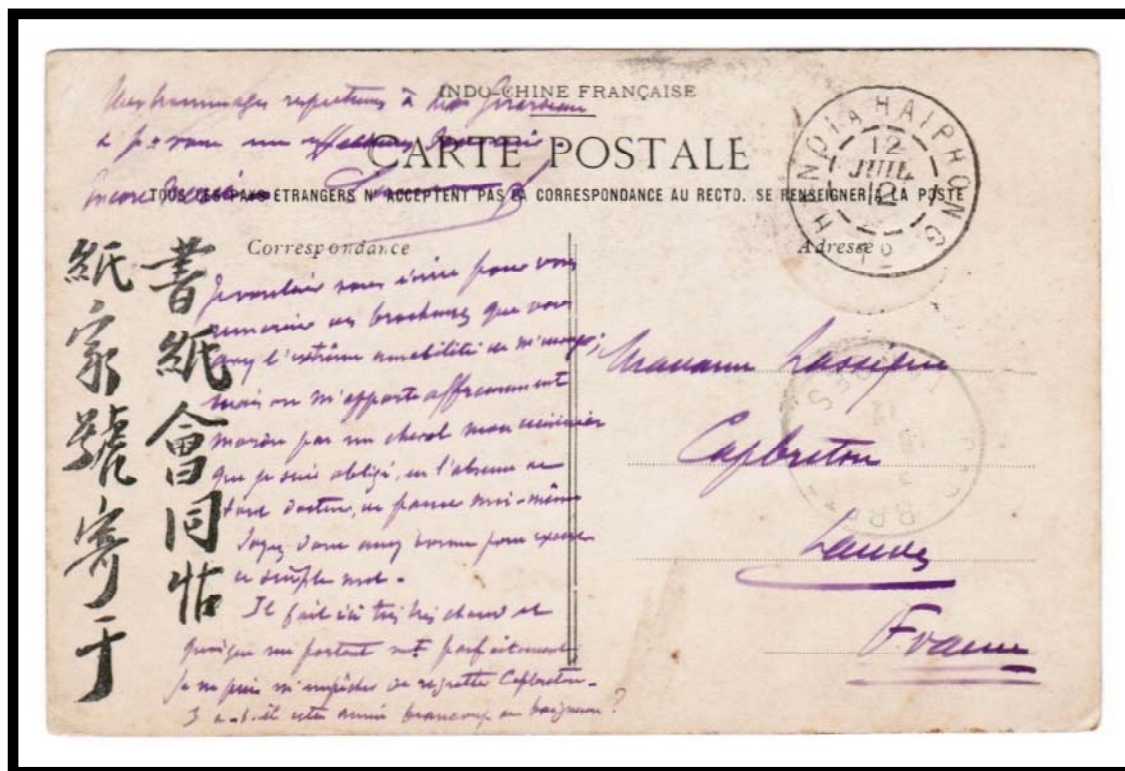 INDO-CHINE FRANÇAISE
CARTE POSTALE
TOUS LES PAYS ÉTRANGERS N'ACCEPTENT PAS LA CORRESPONDANCE AU RECTO. SE RENSEIGNER A LA POSTE
Mes hommages respectueux à
un affectueux souvenir.
Encore merci
HANOI A HAIPHONG
12
JUIL
12
Correspondance
Adresse
書紙會同怗
紙家號寄于
Je voulais vous écrire pour vous
remercier des brochures que vous
avez l'extrême amabilité de m'envoyer;
mais on m'apporte affreusement
mordu par un cheval mon cuisinier
que je suis obligé, en l'absence de
tout docteur, de panser moi-même
Soyez donc assez bonne pour excuser
ce simple mot.
Il fait ici très très chaud et
quoique me portant parfaitement
je ne puis m'empêcher de regretter Capbreton.
Y a-t-il cette année beaucoup de baigneurs?
Madame Lassègue
Capbreton
Landes
France